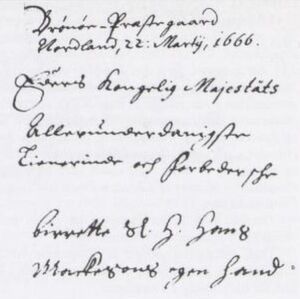 Brönöe-Præstegaard
Nordland, 22: Martij, 1666.
Eders Kongelig Majestäts
Allerunderdanigste
Tienerinde och forbedersche
birrette Sl. H. Hans
Mackesons egen hand.